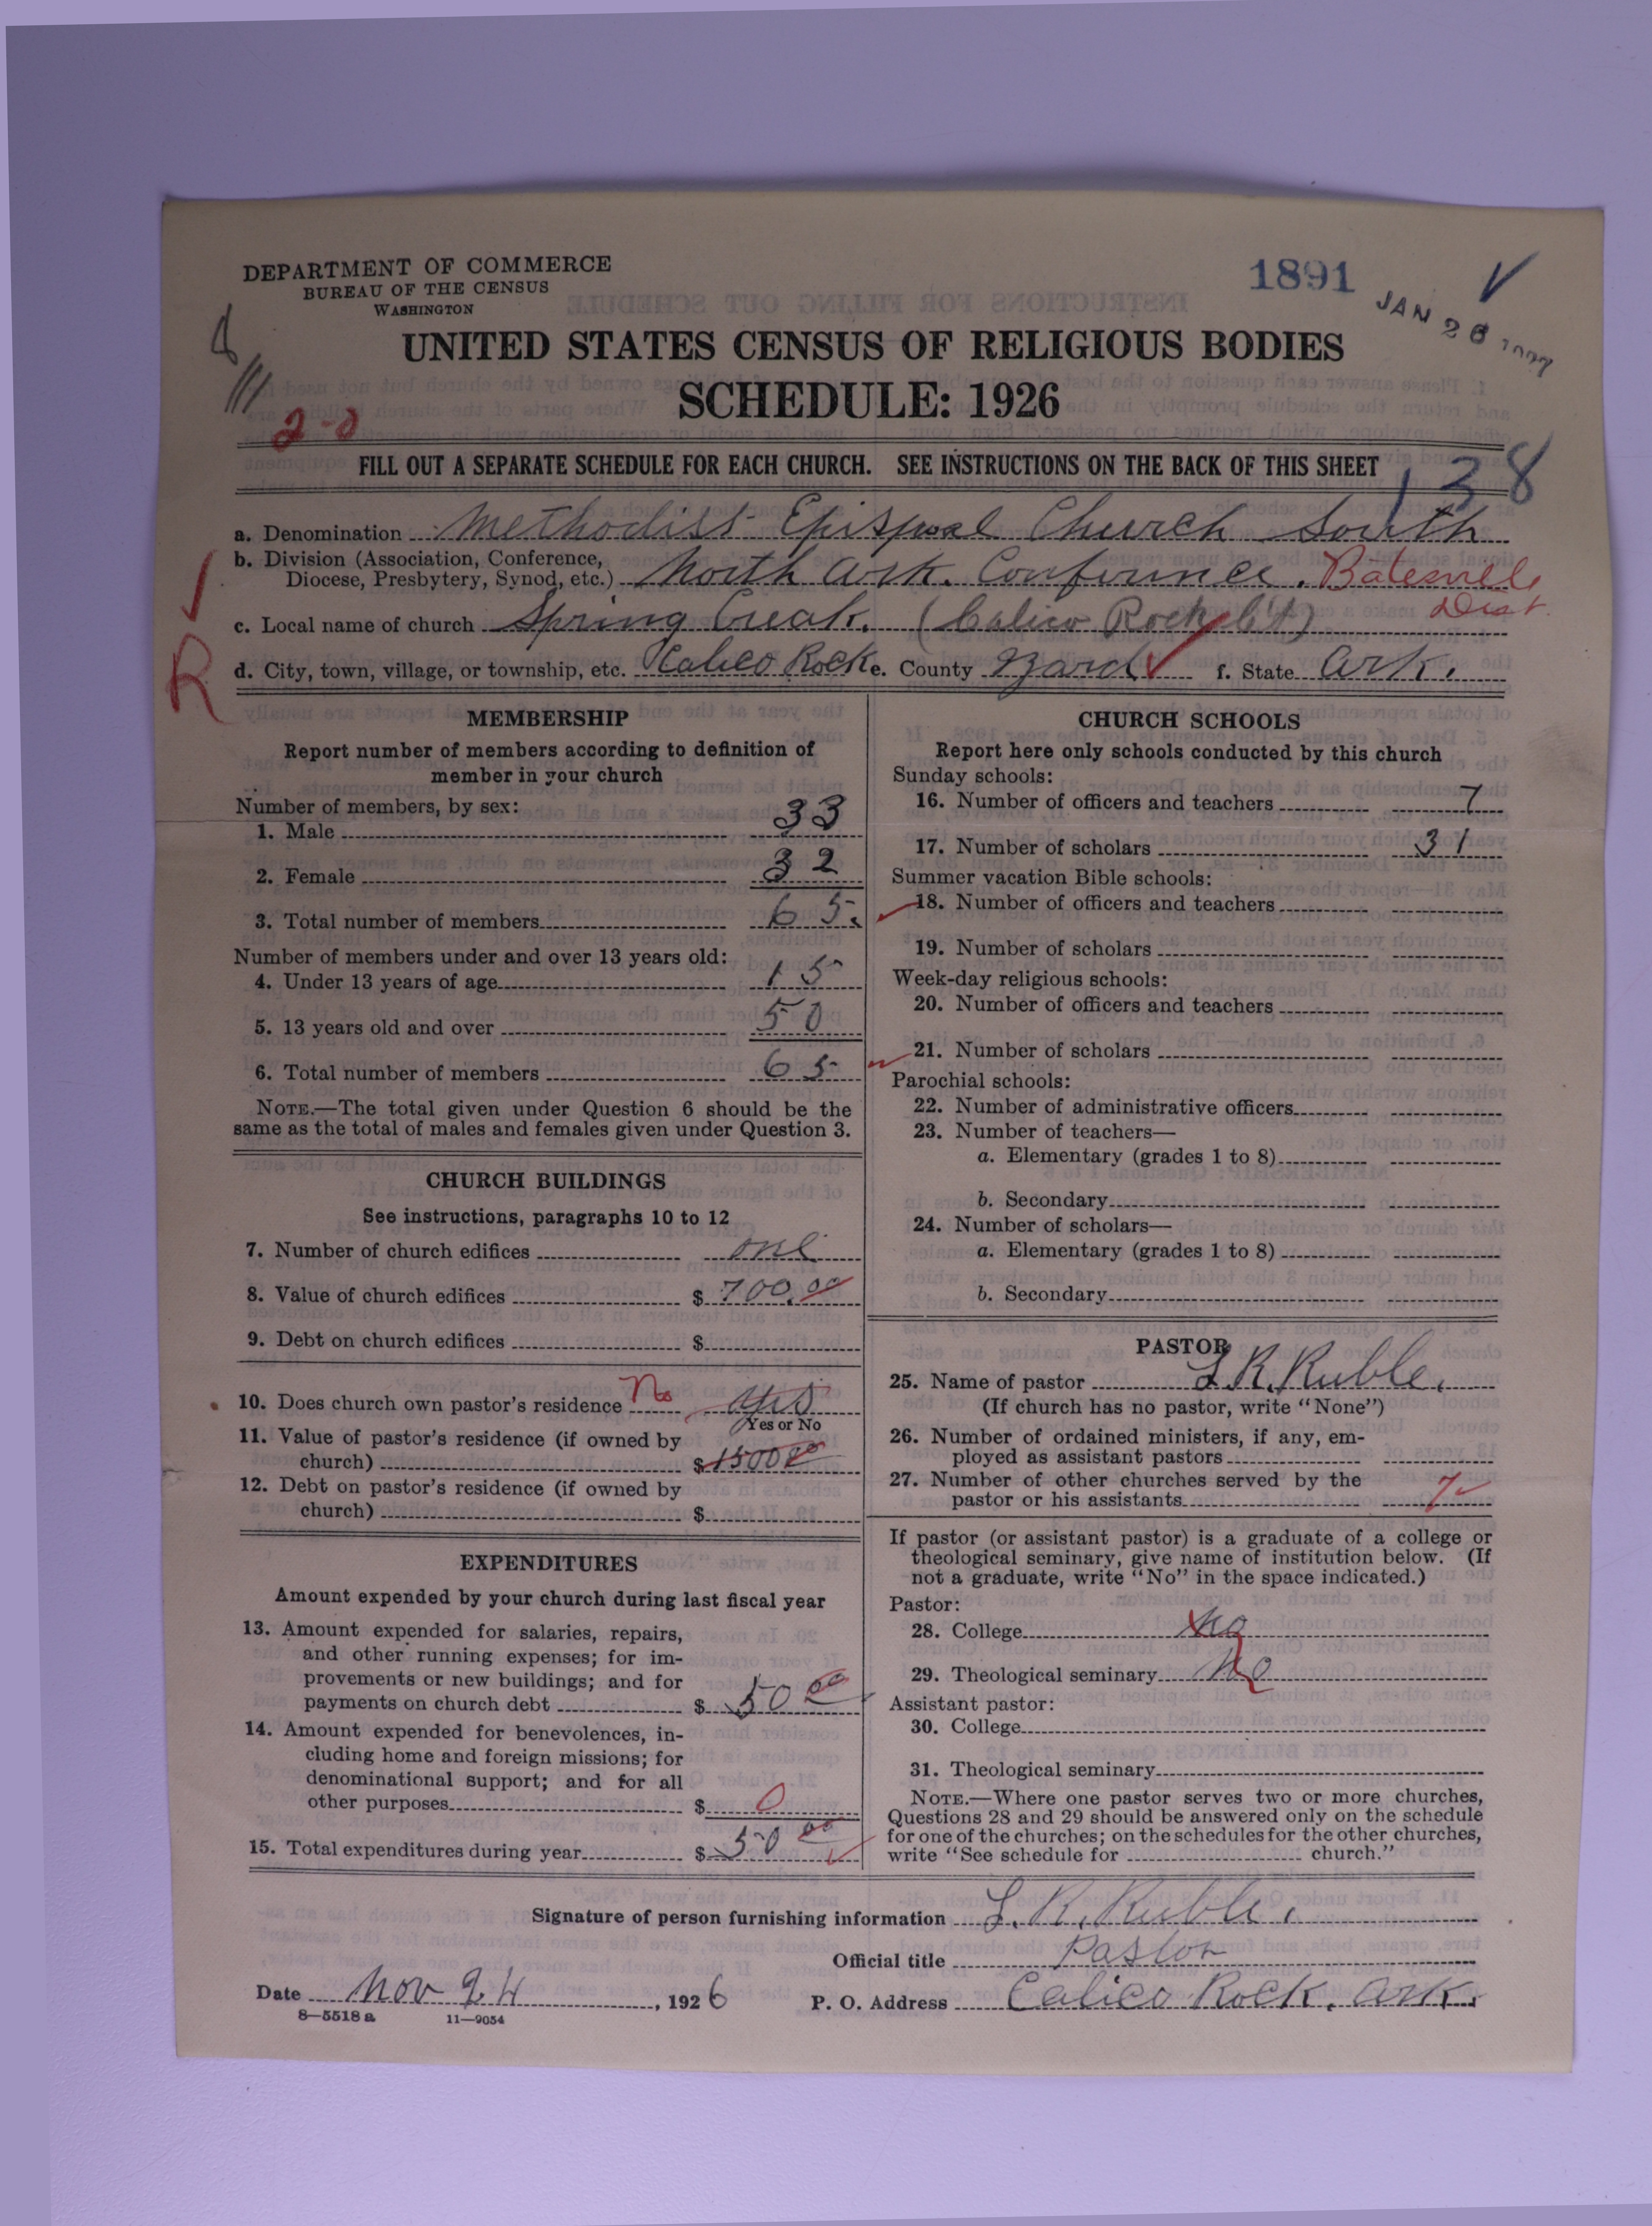 DEPARTMENT OF COMMERCE
BUREAU OF THE CENSUS
WASHINGTON
1891
JAN 26 1927
UNITED STATES CENSUS OF RELIGIOUS BODIES
SCHEDULE: 1926
2-0
FILL OUT A SEPARATE SCHEDULE FOR EACH CHURCH. SEE INSTRUCTIONS ON THE BACK OF THIS SHEET
138
a. Denomination Methodist Epispoal Church South
b. Division (Association, Conference,
Diocese, Presbytery, Synod, etc.) North Ark. Conference. Batesville
Dist.
c. Local name of church Spring Creak. (Calico Rock Ct)
R
d. City, town, village, or township, etc. Calico Rock e. County Izard f. State Ark.
MEMBERSHIP
Report number of members according to definition of
member in your church
Number of members, by sex:
1. Male 33
2. Female 32
3. Total number of members 65.
Number of members under and over 13 years old:
4. Under 13 years of age 15
5. 13 years old and over 50
6. Total number of members 65
NOTE.—The total given under Question 6 should be the
same as the total of males and females given under Question 3.
CHURCH BUILDINGS
See instructions, paragraphs 10 to 12
7. Number of church edifices one
8. Value of church edifices $ 700.00
9. Debt on church edifices $
10. Does church own pastor's residence No yes
Yes or No
11. Value of pastor's residence (if owned by
church) $ 1500.00
12. Debt on pastor's residence (if owned by
church) $
EXPENDITURES
Amount expended by your church during last fiscal year
13. Amount expended for salaries, repairs,
and other running expenses; for im-
provements or new buildings; and for
payments on church debt $ 50 00
14. Amount expended for benevolences, in-
cluding home and foreign missions; for
denominational support; and for all
other purposes $ 0
15. Total expenditures during year $ 50 00
CHURCH SCHOOLS
Report here only schools conducted by this church
Sunday schools:
16. Number of officers and teachers 7
17. Number of scholars 31
Summer vacation Bible schools:
18. Number of officers and teachers
19. Number of scholars
Week-day religious schools:
20. Number of officers and teachers
21. Number of scholars
Parochial schools:
22. Number of administrative officers
23. Number of teachers—
a. Elementary (grades 1 to 8)
b. Secondary
24. Number of scholars—
a. Elementary (grades 1 to 8)
b. Secondary
PASTOR
25. Name of pastor L.R. Ruble.
(If church has no pastor, write "None")
26. Number of ordained ministers, if any, em-
ployed as assistant pastors
27. Number of other churches served by the
pastor or his assistants 7
If pastor (or assistant pastor) is a graduate of a college or
theological seminary, give name of institution below. (If
not a graduate, write "No" in the space indicated.)
Pastor:
28. College No
29. Theological seminary No
Assistant pastor:
30. College
31. Theological seminary
NOTE.—Where one pastor serves two or more churches,
Questions 28 and 29 should be answered only on the schedule
for one of the churches; on the schedules for the other churches,
write "See schedule for church."
Signature of person furnishing information L. R. Ruble.
Official title Pastor
Date Nov 24, 1926 P. O. Address Calico Rock. Ark.
8—5518 a 11—9054